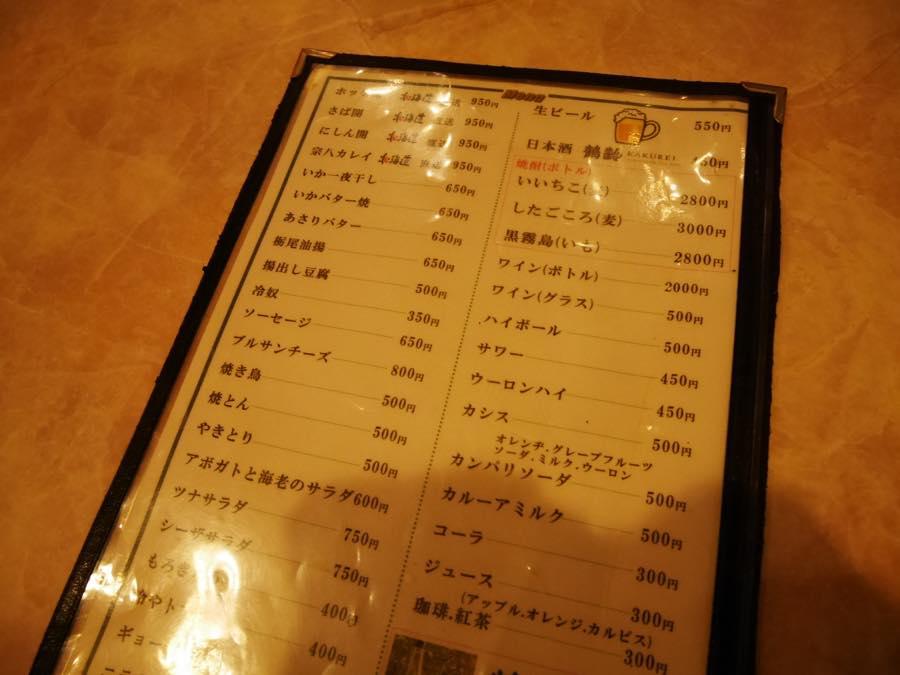 Menu
ホッ 北海道直送 950円
さば開 北海道直送 950円
にしん開 北海道直送 950円
宗八カレイ 北海道直送 950円
いか一夜干し 650円
いかバター焼 650円
あさりバター 650円
栃尾油揚 650円
揚出し豆腐 500円
冷奴 350円
ソーセージ 650円
ブルサンチーズ 800円
焼き鳥 500円
焼とん 500円
やきとり 500円
アボガトと海老のサラダ 600円
ツナサラダ 750円
シーザサラダ 750円
もろき 400円
冷やト 400円
ギョー
生ビール 550円
日本酒 鶴齢 KAKUREI 450円
焼酎(ボトル)
いいちこ(麦) 2800円
したごころ(麦) 3000円
黒霧島(いも) 2800円
ワイン(ボトル) 2000円
ワイン(グラス) 500円
ハイボール 500円
サワー 450円
ウーロンハイ 450円
カシス 500円
オレンヂ.グレープフルーツ
ソーダ.ミルク.ウーロン
カンパリソーダ 500円
カルーアミルク 500円
コーラ 300円
ジュース 300円
(アップル.オレンジ.カルピス)
珈琲.紅茶 300円